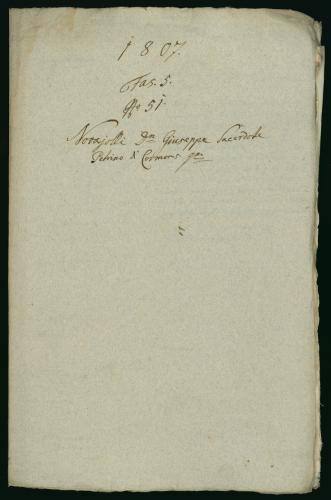 1807.
Fas. 5.
No 51
Novajolli Dn Giuseppe Sacerdote
Petrino X Cormons